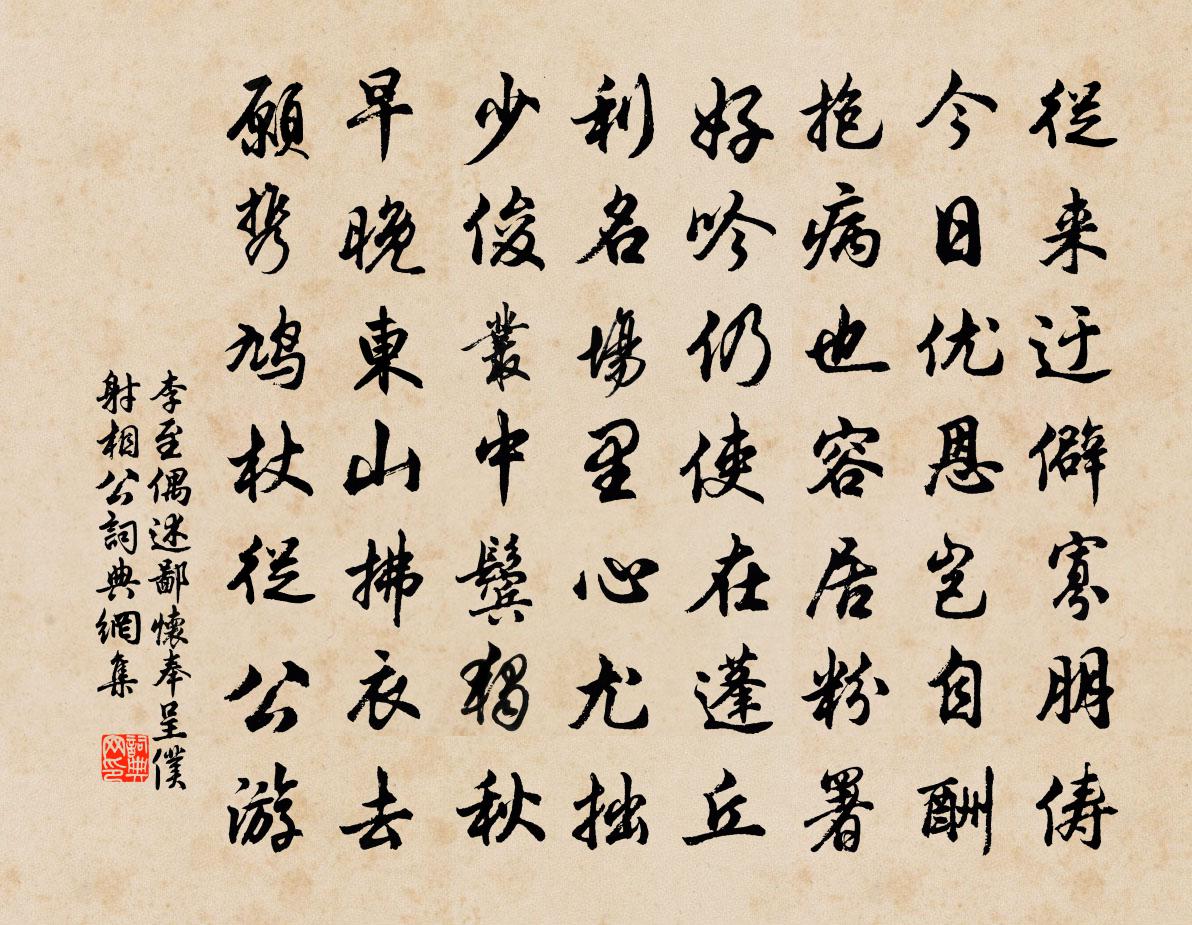 從来迂僻寡朋儔
今日优恩岂自酬
抱病也容居粉署
好吟仍使在蓬丘
利名場里心尤拙
少俊叢中鬓独秋
早晚東山拂衣去
願携鳩杖從公游
李至偶述鄙懷奉呈僕
射相公詞典網集
詞典
网印